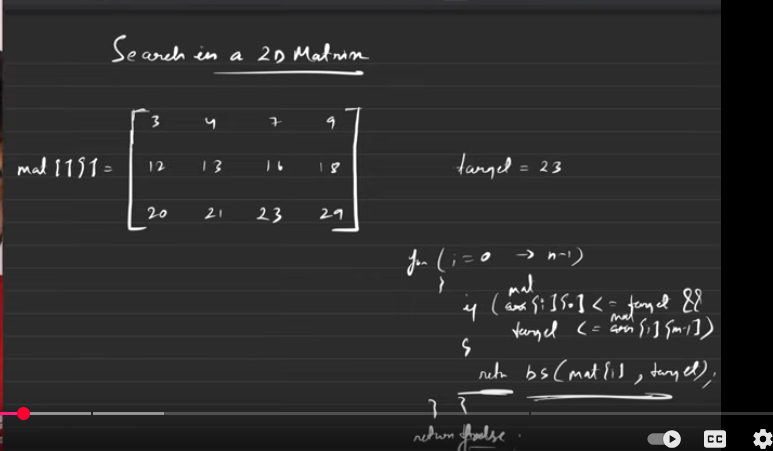 Search in a 2D Matrix
mat [ ] [ ] =
3 4 7 9
12 13 16 18
20 21 23 29
target = 23
for (i = 0 → n-1)
{
if (mat[i][0] <= target &&
target <= mat[i][m-1])
{
retn bs(mat[i], target);
} }
return false.
CC